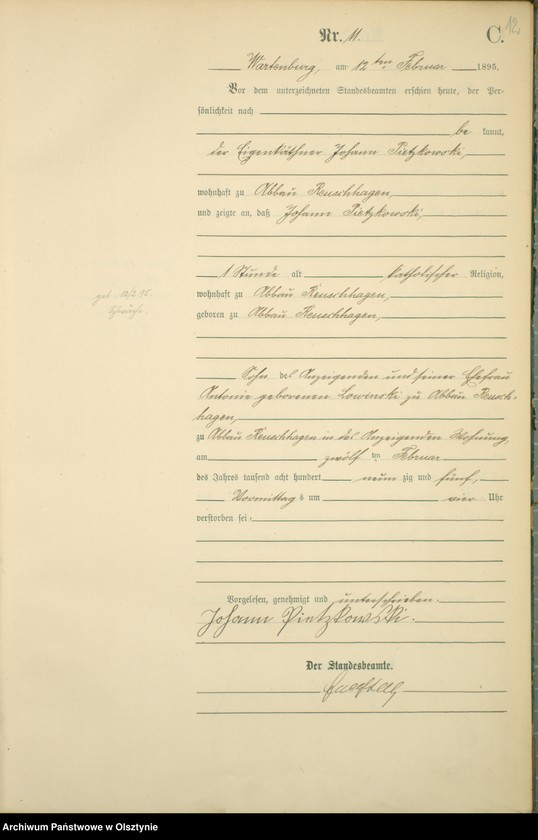 12
Nr. 11. C.
Wartenburg, am 12 ten Februar 1895.
Vor dem unterzeichneten Standesbeamten erschien heute, der Per-
sönlichkeit nach
be kannt,
der Eigenkäthner Johann Pietzkowski,
wohnhaft zu Abbau Reuschhagen,
und zeigte an, daß Johann Pietzkowski,
1 Stunde alt katholischer Religion,
wohnhaft zu Abbau Reuschhagen,
geboren zu Abbau Reuschhagen,
geb. 12/2 95.
Schwäche.
Sohn des Anzeigenden und seiner Ehefrau
Antonie geborenen Lowinski zu Abbau Reusch-
hagen,
zu Abbau Reuschhagen in des Anzeigenden Wohnung,
am zwölf ten Februar
des Jahres tausend acht hundert neun zig und fünf,
Vormittags um vier Uhr
verstorben sei.
Vorgelesen, genehmigt und unterschrieben.
Johann Pietzkowski.
Der Standesbeamte.
Archiwum Państwowe w Olsztynie